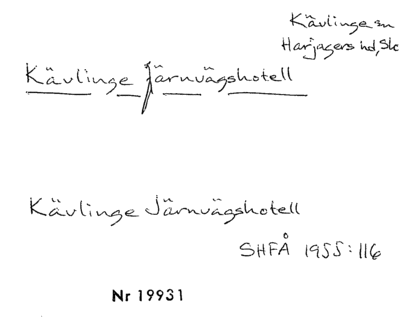 Kävlinge sn
Harjagers hd, Sk
Kävlinge Järnvägshotell
Kävlinge Järnvägshotell
SHFÅ 1955:116
Nr 19931